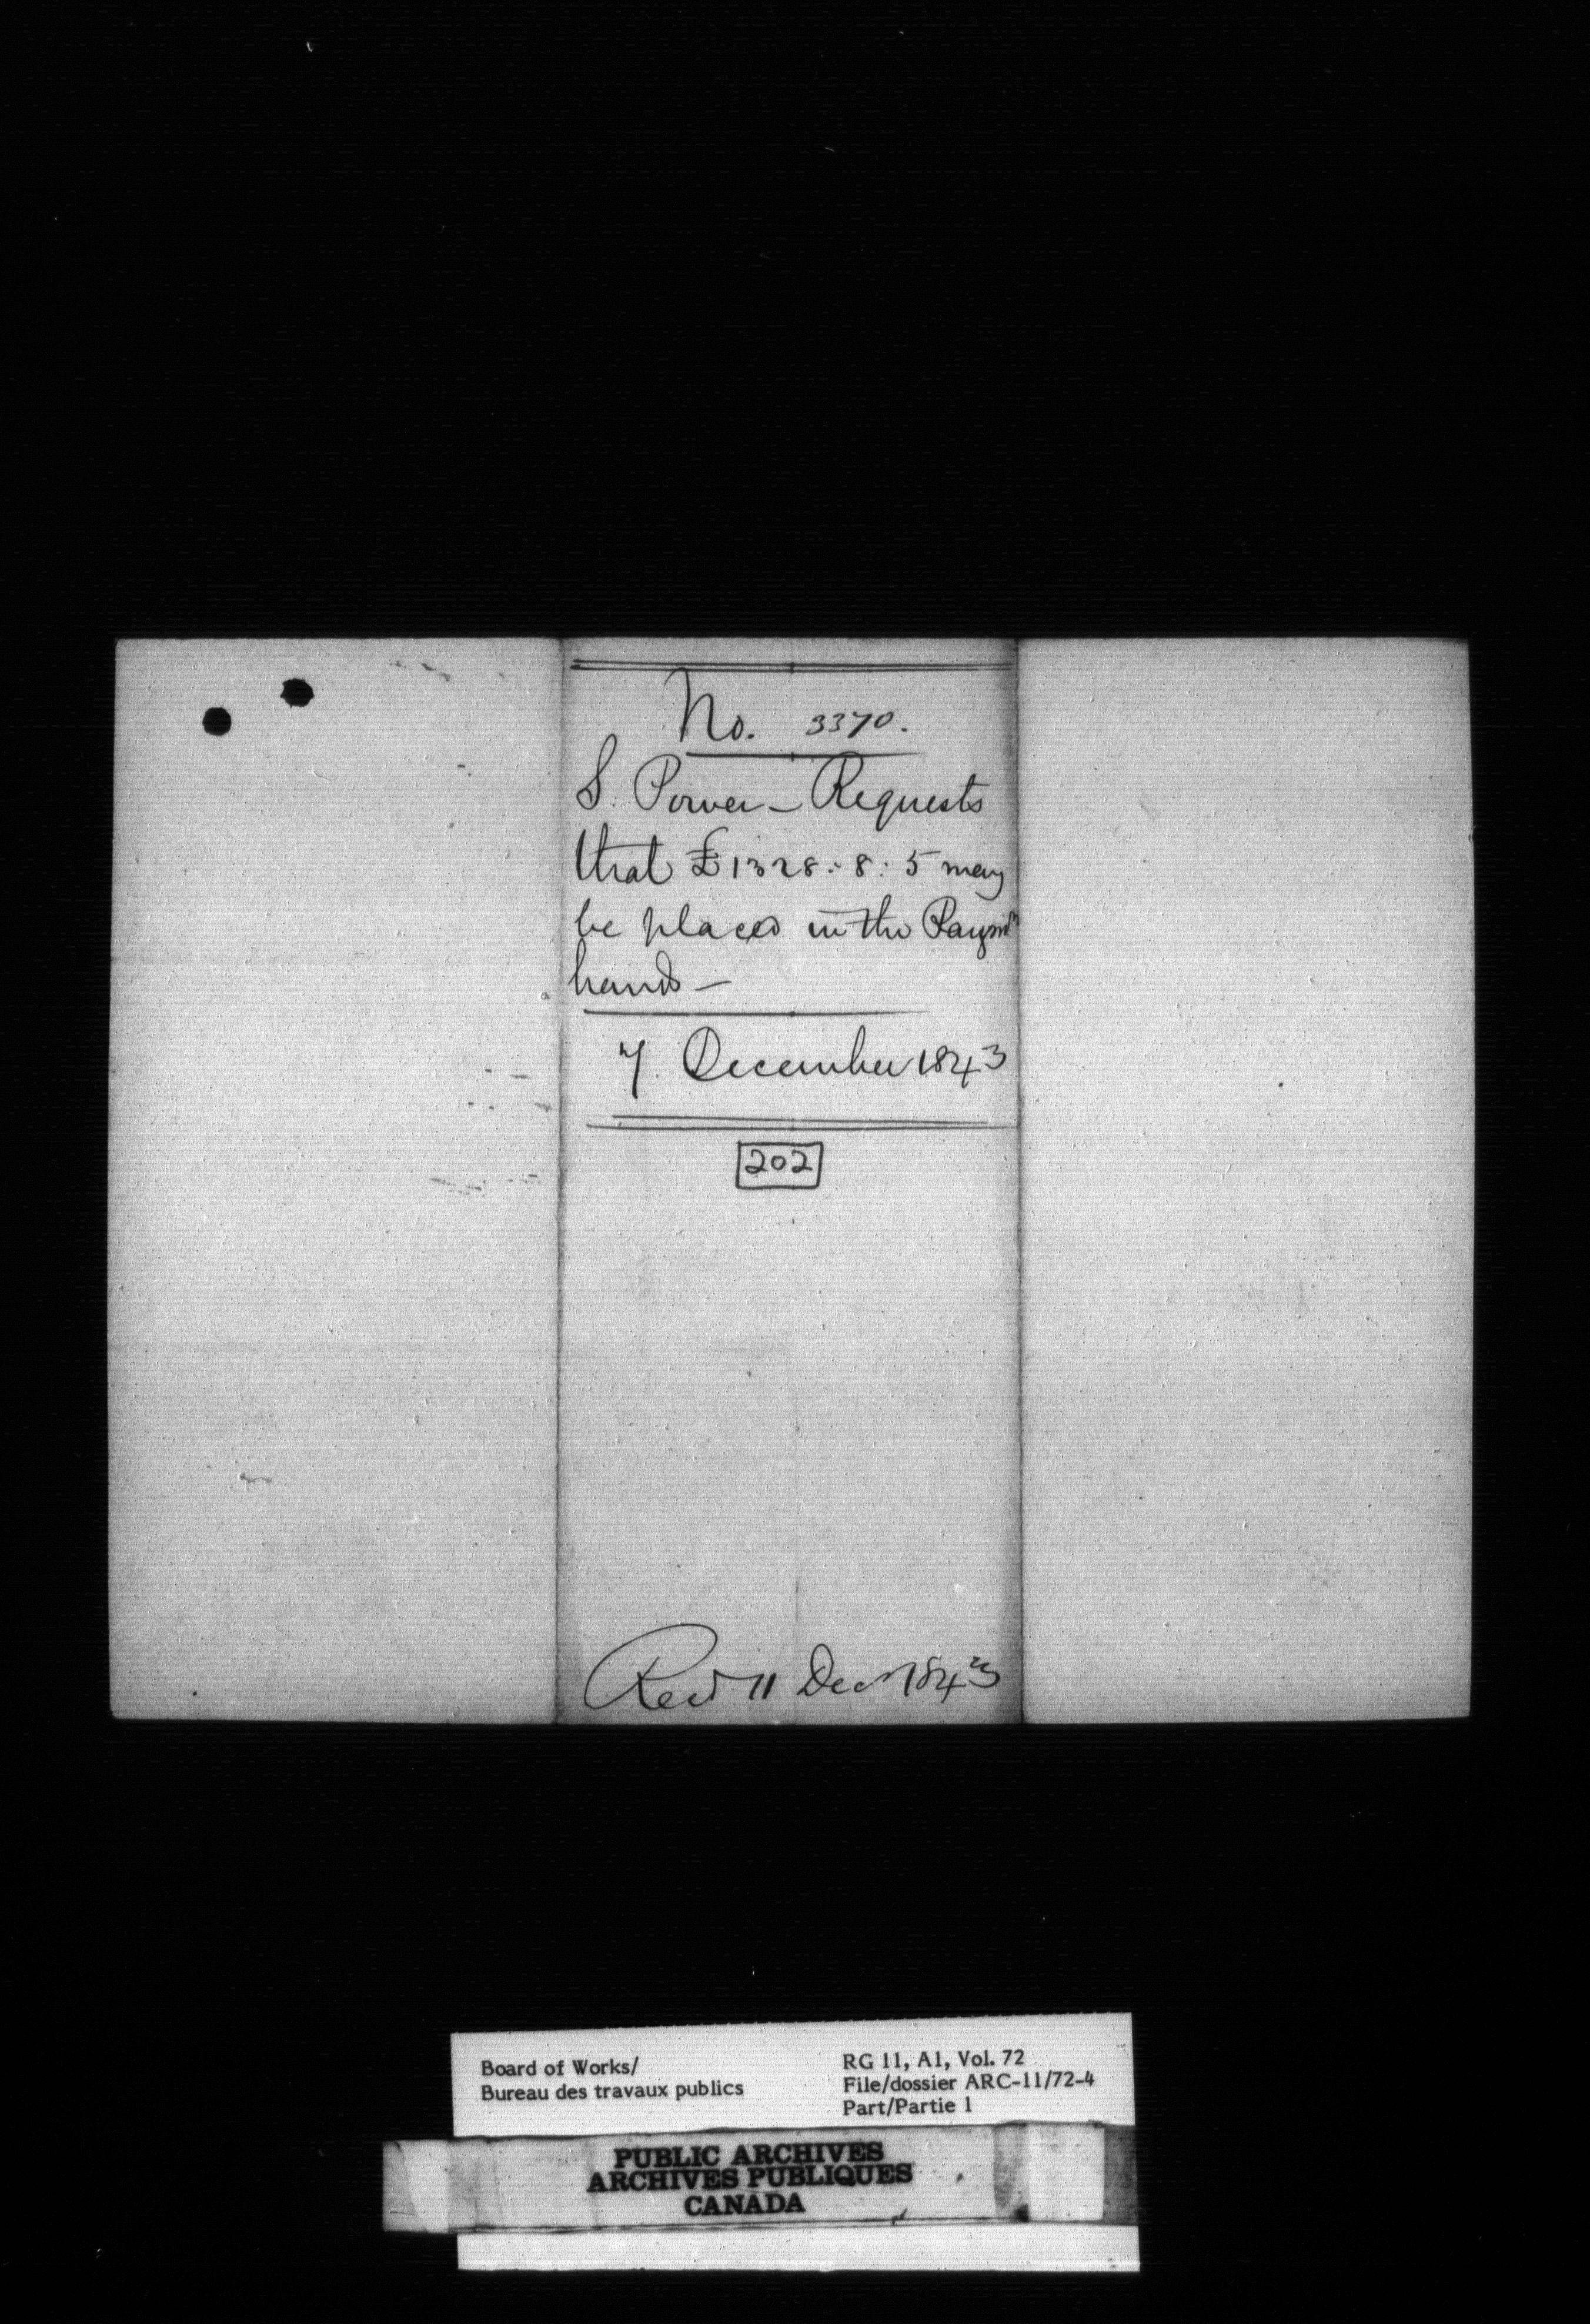 No. 3370.
S. Power - Requests
that £1328: 8: 5 may
be placed in the Paym^rs
hands -
7 December 1843
202
Recd 11 Decr 1843
Board of Works/
Bureau des travaux publics
RG 11, A1, Vol. 72
File/dossier ARC-11/72-4
Part/Partie 1
PUBLIC ARCHIVES
ARCHIVES PUBLIQUES
CANADA